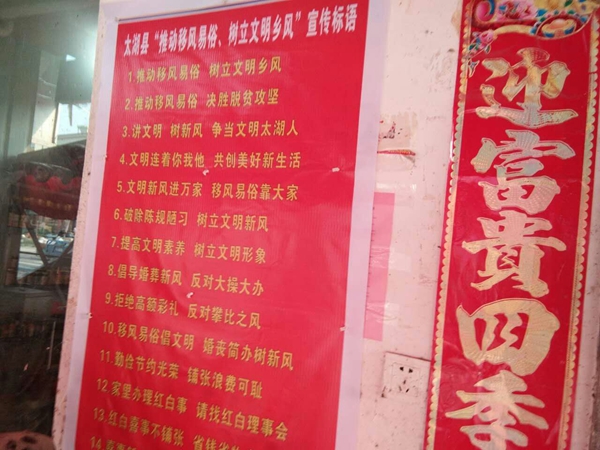 太湖县“推动移风易俗、树立文明乡风”宣传标语
1.推动移风易俗 树立文明乡风
2.推动移风易俗 决胜脱贫攻坚
3.讲文明 树新风 争当文明太湖人
4.文明连着你我他 共创美好新生活
5.文明新风进万家 移风易俗靠大家
6.破除陈规陋习 树立文明新风
7.提高文明素养 树立文明形象
8.倡导婚葬新风 反对大操大办
9.拒绝高额彩礼 反对攀比之风
10.移风易俗倡文明 婚丧简办树新风
11.勤俭节约光荣 铺张浪费可耻
12.家里办理红白事 请找红白理事会
13.红白喜事不铺张 省钱省
14.喜事
迎富貴四季